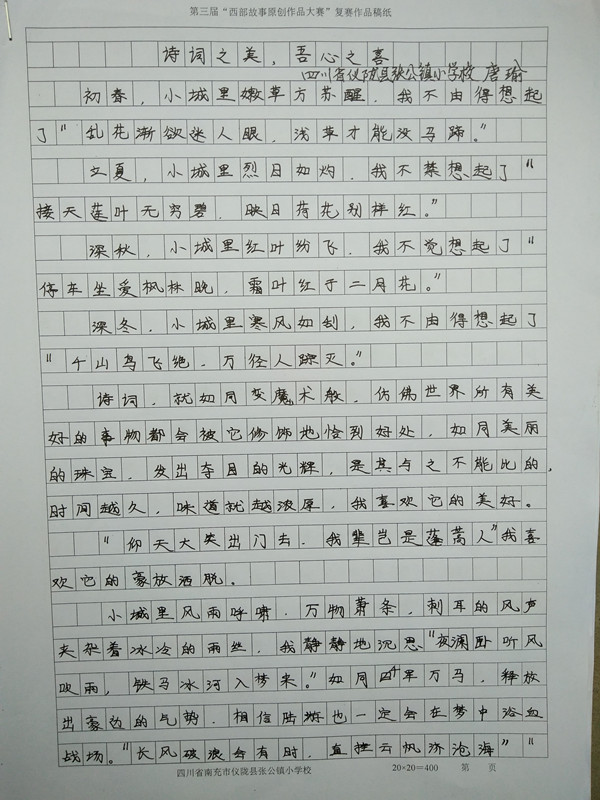 第三届“西部故事原创作品大赛”复赛作品稿纸
诗词之美，吾心之喜
四川省仪陇县张公镇小学校 唐瑜
初春，小城里嫩草方苏醒，我不由得想起
了“乱花渐欲迷人眼，浅草才能没马蹄。”
立夏，小城里烈日如灼，我不禁想起了“
接天莲叶无穷碧，映日荷花别样红。”
深秋，小城里红叶纷飞，我不觉想起了“
停车坐爱枫林晚，霜叶红于二月花。”
深冬，小城里寒风如刮，我不由得想起了
“千山鸟飞绝，万径人踪灭。”
诗词，就如同变魔术般，仿佛世界所有美
好的事物都会被它修饰地恰到好处，如同美丽
的珠宝，发出夺目的光辉，是其与之不能比的，
时间越久，味道就越浓厚，我喜欢它的美好。
“仰天大笑出门去，我辈岂是蓬蒿人”我喜
欢它的豪放洒脱。
小城里风雨呼啸，万物萧条，刺耳的风声
夹杂着冰冷的雨丝，我静静地沉思“夜阑卧听风
吹雨，铁马冰河入梦来。”如同千军万马，释放
出豪迈的气势，相信陆游也一定会在梦中浴血
战场。“长风破浪会有时，直挂云帆济沧海”“
四川省南充市仪陇县张公镇小学校 20×20=400 第 页